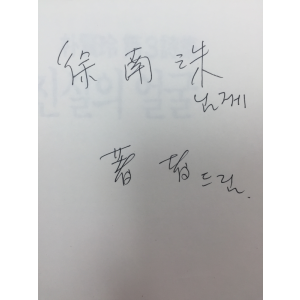 徐南洙
님께
著者드림.